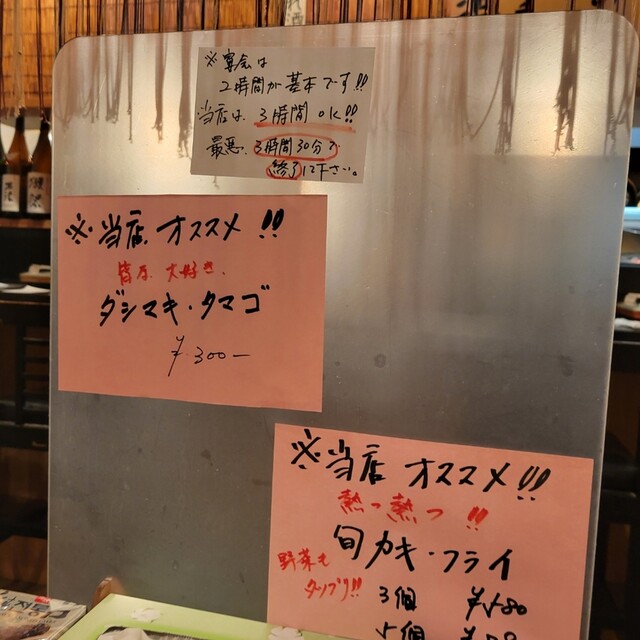 ※宴会は
2時間が基本です!!
当店は、3時間 OK!!
最悪、3時間30分で
終了して下さい。
※当店オススメ!!
皆不大好き、
ダシマキ・タマゴ
¥300ー
※当店オススメ!!
熱っ熱っ!!
旬カキ・フライ
野菜も
タップリ!!
3個 ¥580
5個